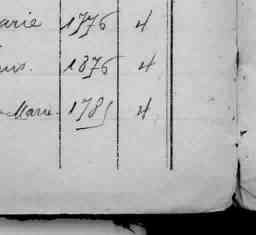 arie 1776 4
uis. 1876 4
Marie 1785 4